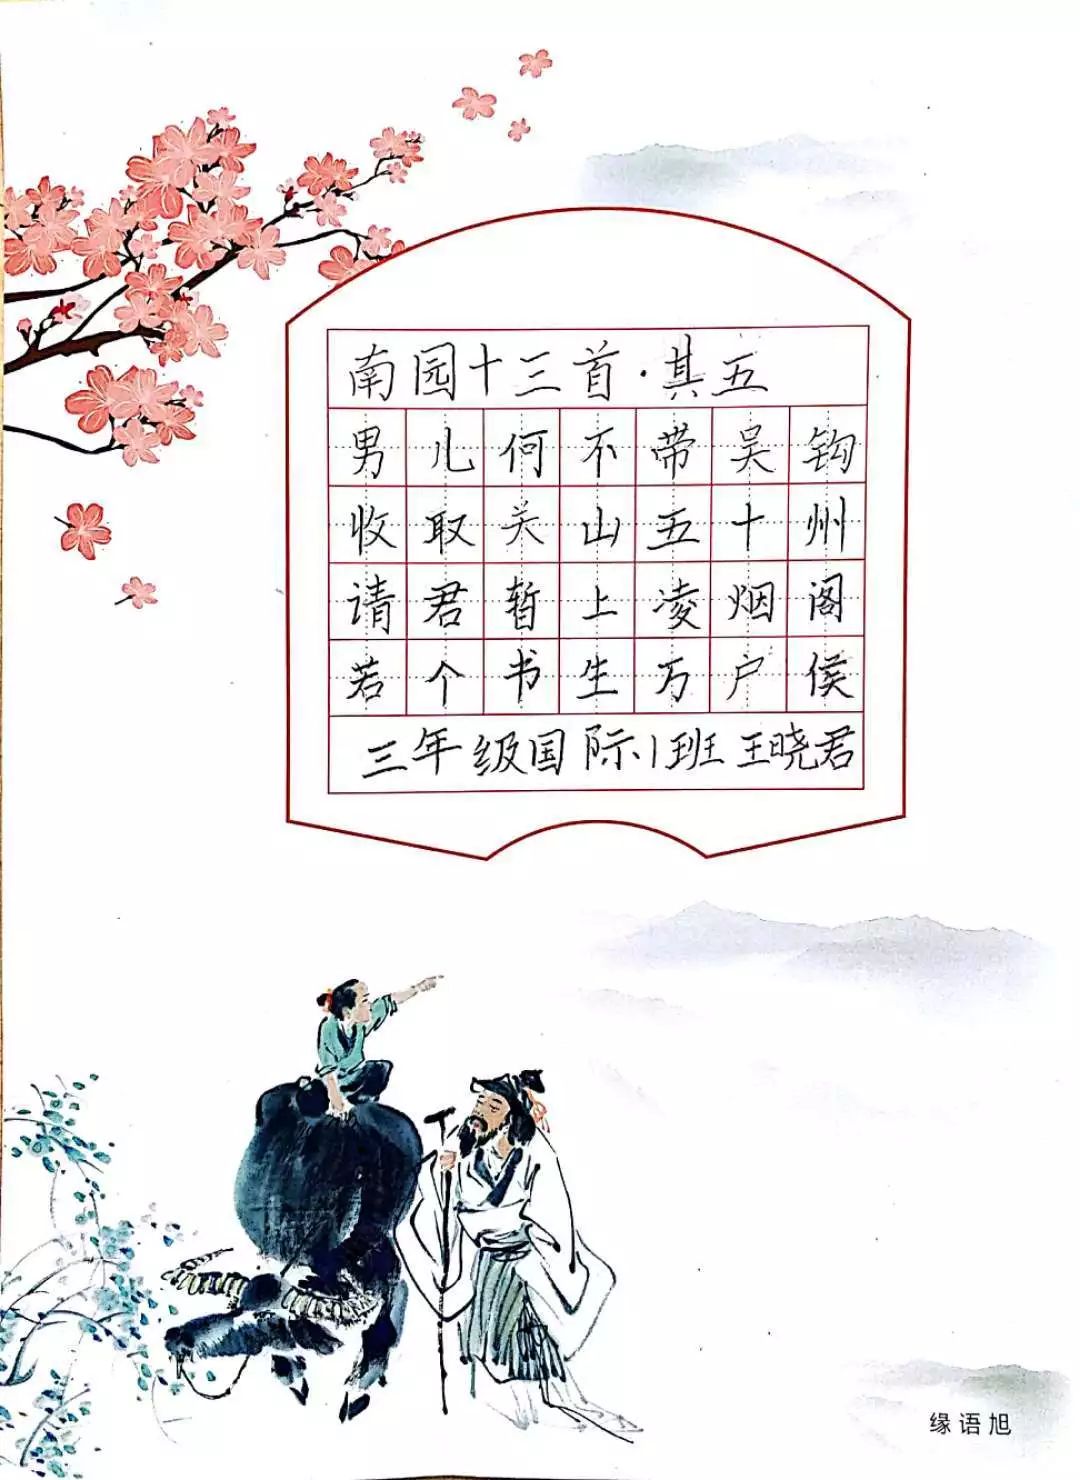 南园十三首·其五
男儿何不带吴钩
收取关山五十州
请君暂上凌烟阁
若个书生万户侯
三年级国际1班王晓君
缘语旭